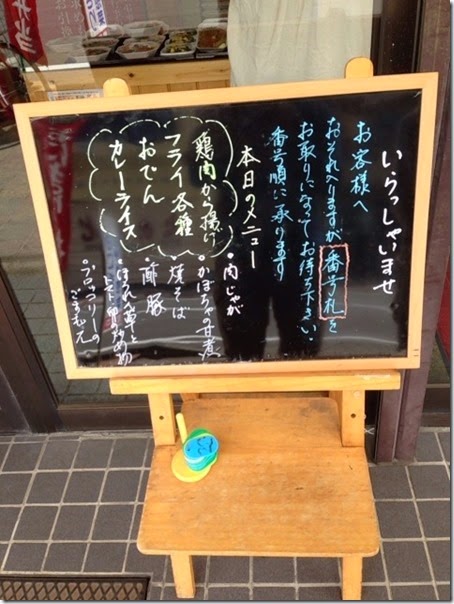 いらっしゃいませ
お客様へ
おそれ入りますが番号札を
お取りになってお待ち下さい。
番号順に承ります
本日のメニュー
鶏肉から揚げ
フライ各種
おでん
カレーライス
・肉じゃが
・かぼちゃの甘煮
・焼そば
・酢豚
・ほうれん草と
トマト卵の炒め物
・ブロッコリーの
ごま和え